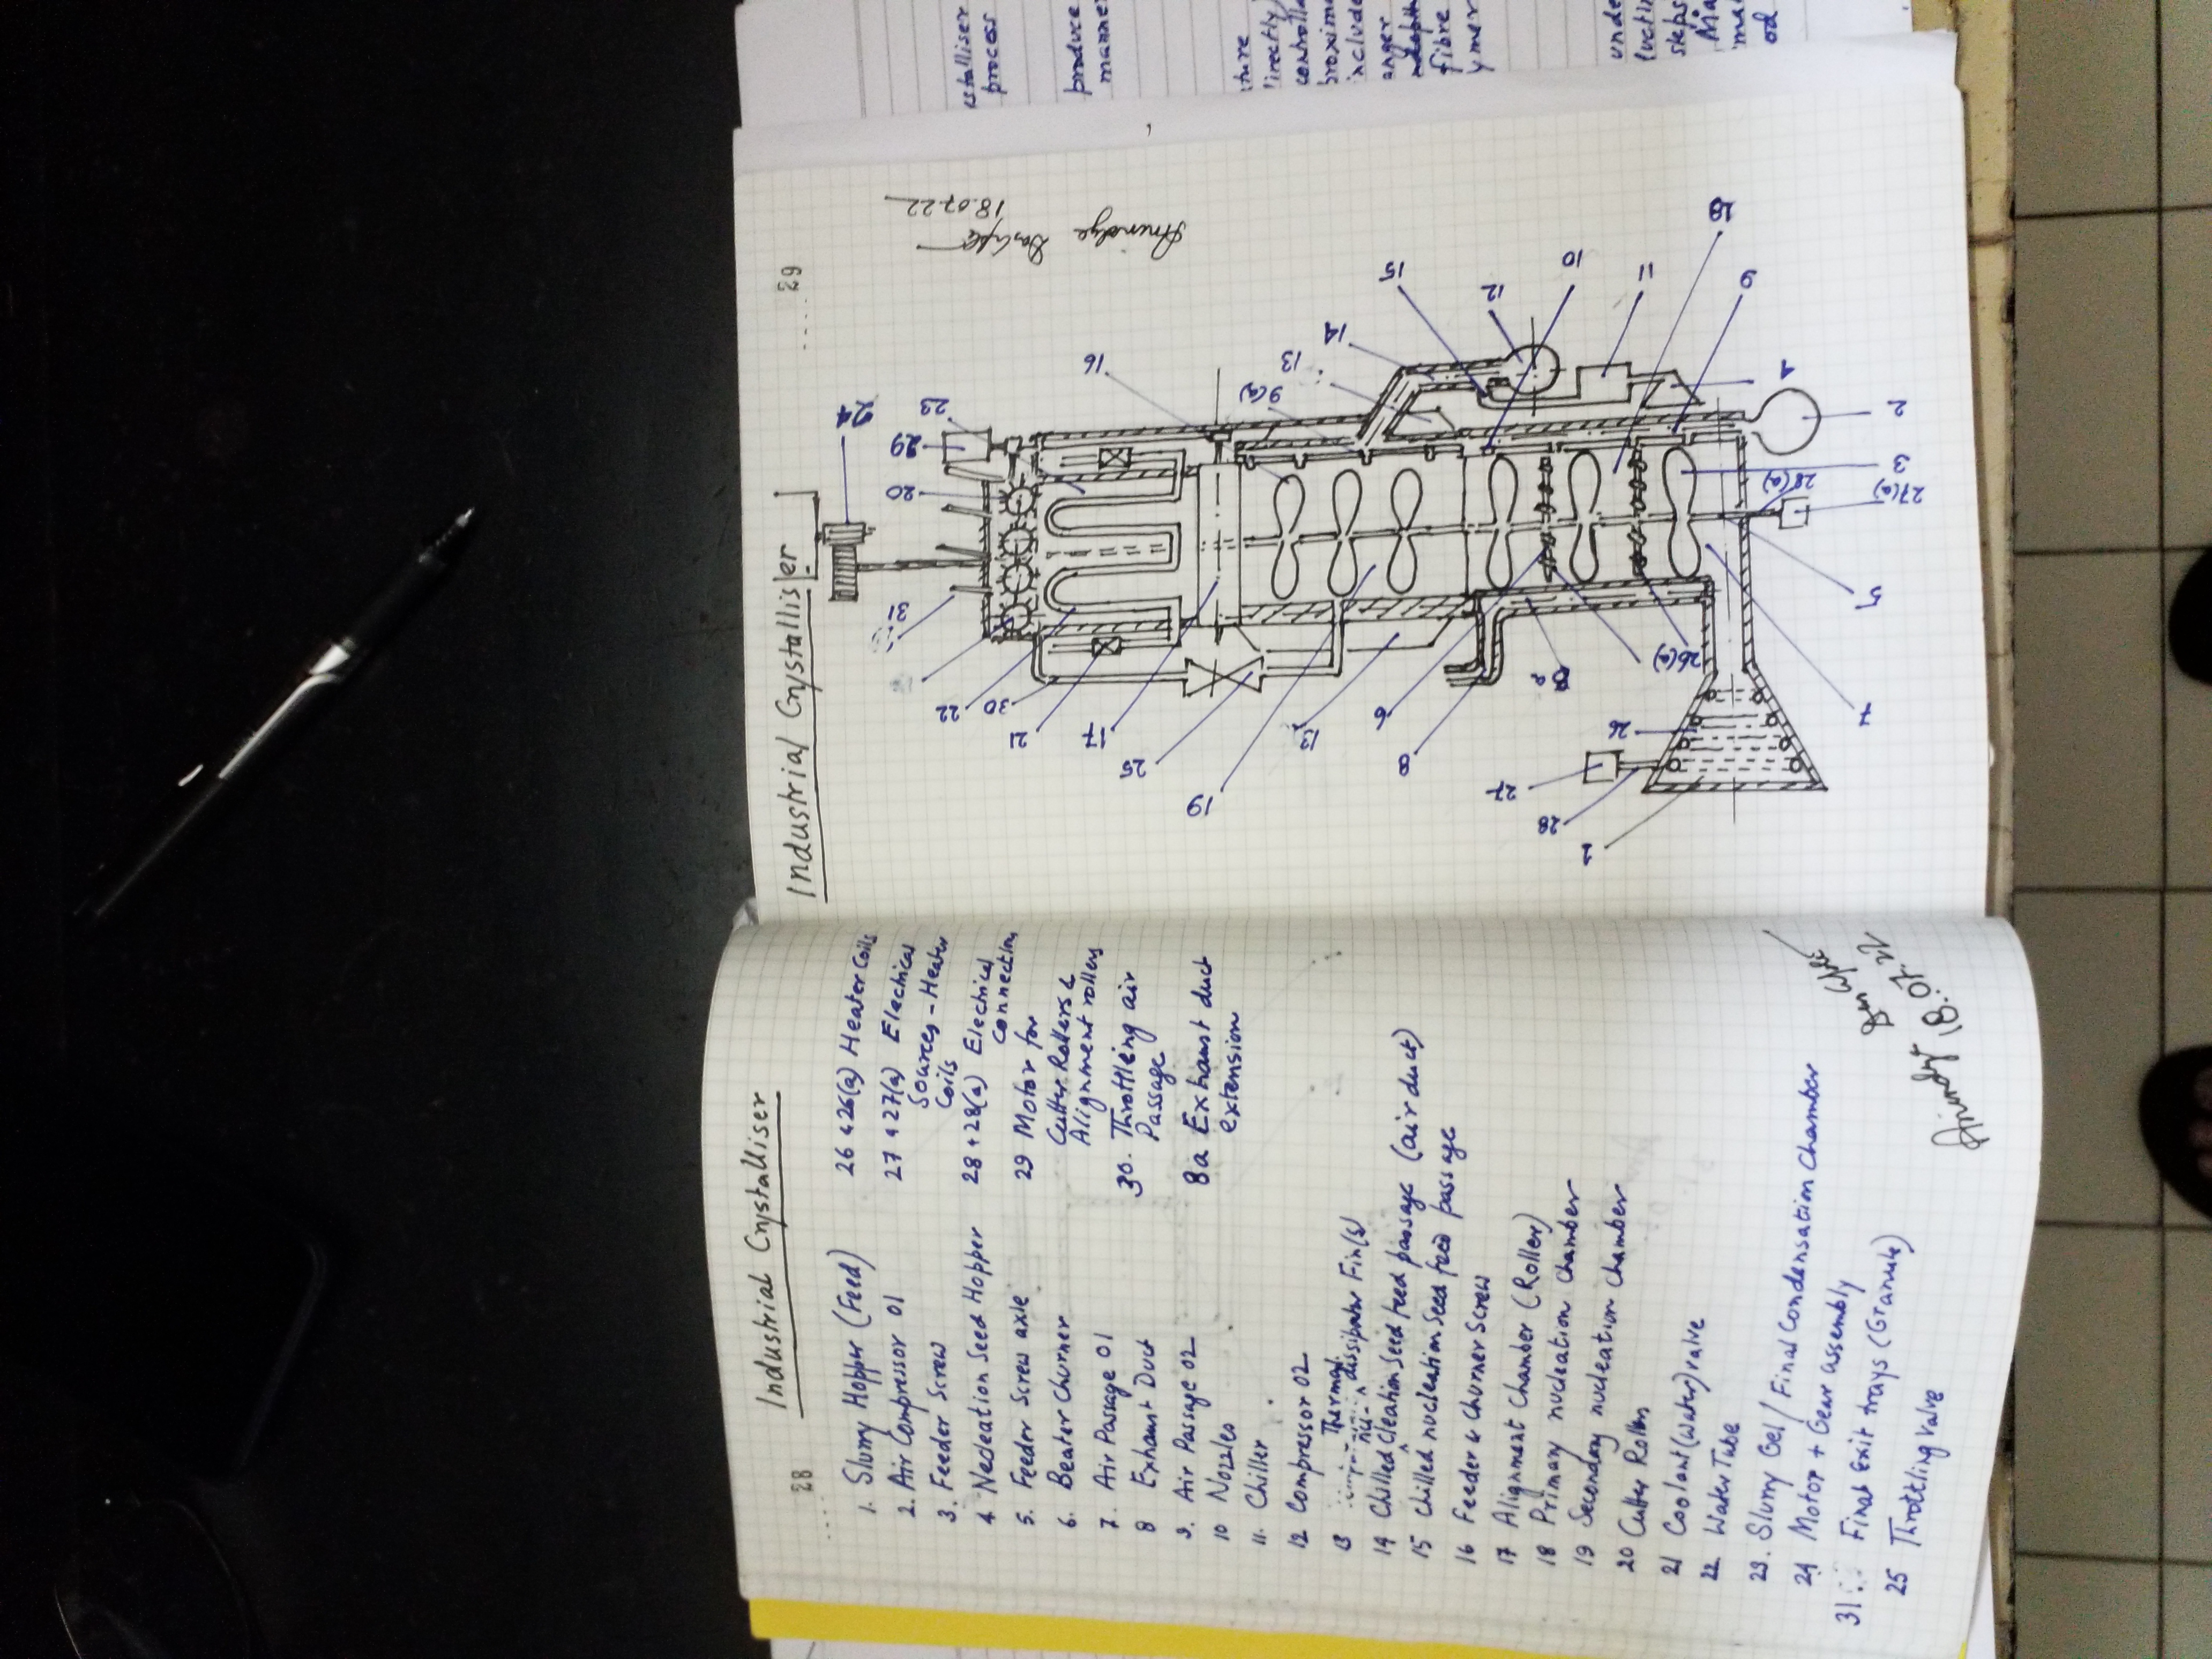 28
Industrial Crystalliser
1. Slurry Hopper (Feed)
2. Air Compressor 01
3. Feeder Screw
4. Necleation Seed Hopper
5. Feeder Screw axle
6. Beater Churner
7. Air Passage 01
8 Exhaust Duct
9. Air Passage 02
10 Nozzles
11. Chiller
12 Compressor 02
13 Thermal dissipator Fin(s)
14 Chilled nucleation Seed feed passage (air duct)
15 chilled nucleation Seed feed passage
16 Feeder & Churner Screw
17 Alignment Chamber (Roller)
18 Primary nucleation Chamber
19 Secondary nucleation chamber
20 Cutter Rollers
21 Coolant (Water) valve
22 Water Tube
23. Slurry Gel / Final Condensation Chamber
24 Motor + Gear assembly
31 Final Exit trays (Granule)
25 Throttling valve
26 & 26(a) Heater Coils
27 & 27(a) Electrical
Sources - Heater
Coils
28 + 28(a) Electrical
connections
29 Motor for
Cutter Rollers &
Alignment rollers
30. Throttling air
Passage
8a Exhaust duct
extension
18.07.22
29
Industrial Crystalliser
18.07.22
24
23
29
20
31
22
30
21
17
25
19
13
6
8
8a
26(a)
26
27
28
1
7
5
27(a)
28(a)
3
2
4
9
18
11
10
12
15
14
13
9(a)
16
stalliser
process
produce
manner
ture
directly
include
anger
fibre
ymer
unde
steps
od